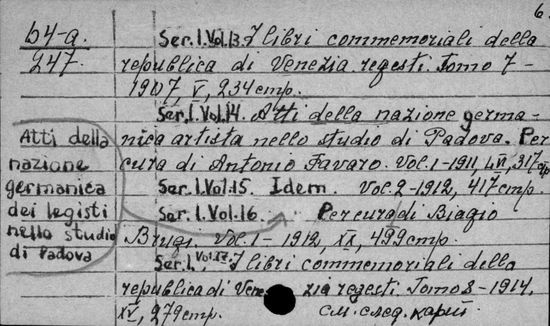 6.
b4-a.
247.
Ser.I.Vol.13. I libri commemoriali della
republica di Venezia regesti. Tomo 7-
1907, V, 234 стр.
Ser.I.Vol.14. Atti della nazione germa-
nica artista nello studio di Padova. Per
cura di Antonio Favaro. Vol.1-1911, 317 стр
Ser.I.Vol.15. Idem. Vol.2-1912, 417 стр.
Ser.I.Vol.16. Per cura di Biagio
Brugi. Vol.1-1912, XX, 499 стр.
Ser.I.Vol.17. I libri commemoriali della
republica di Venezia regesti. Tomo 8-1914,
XV, 279 стр. См. след. карт.
Atti della
nazione
germanica
dei legisti
nello studio
di Padova